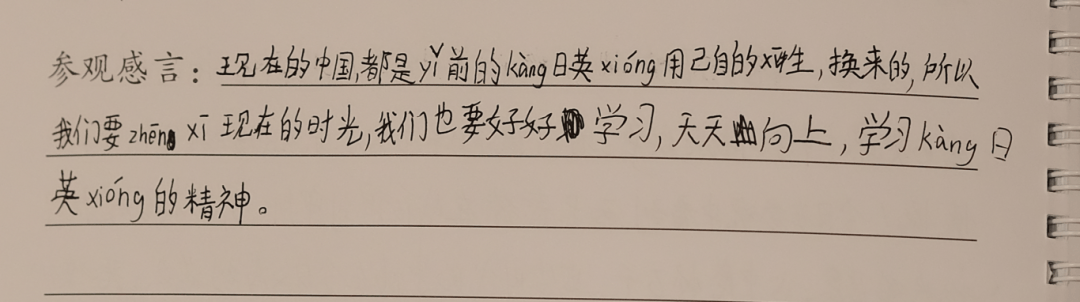 参观感言：现在的中国,都是yǐ前的kàng日英xióng用己自的xī生,换来的,所以
我们要zhēng xī现在的时光,我们也要好好学习,天天向上,学习kàng日
英xióng的精神。